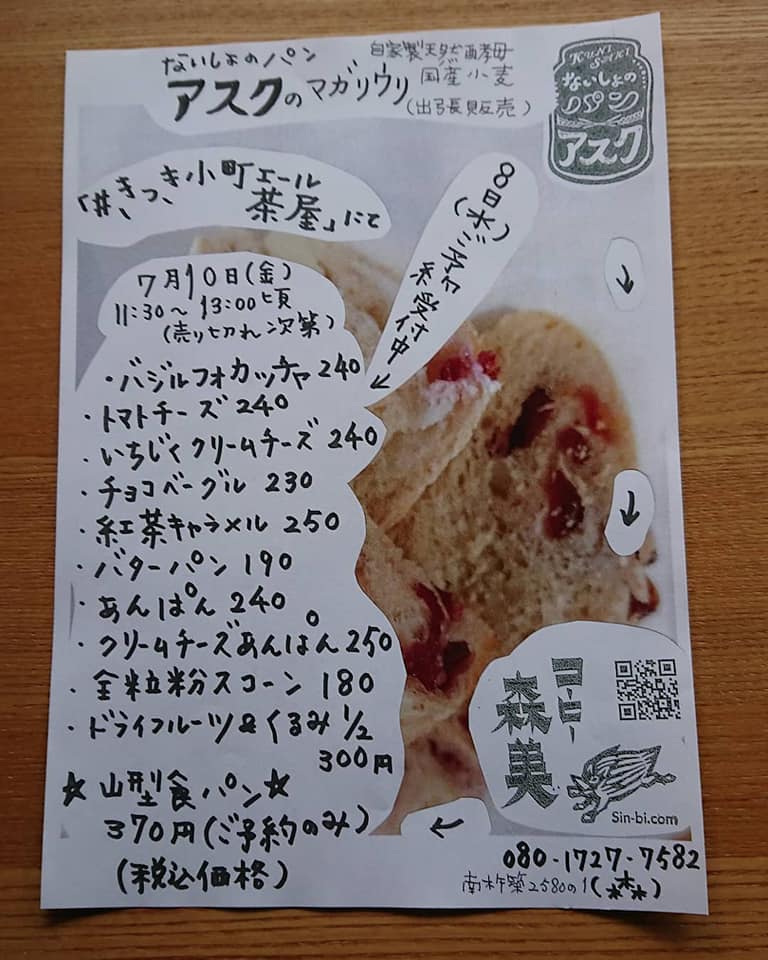 ないしょのパン
アスクのマガリウリ
自家製天然酵母
国産小麦
(出張販売)
KUNISAKI
ないしょの
パン
アスク
「#きつき小町エール
茶屋」にて
8日(水)ご予約受付中
7月10日(金)
11:30~13:00頃
(売り切れ次第)
・バジルフォカッチャ 240
・トマトチーズ 240
・いちじくクリームチーズ 240
・チョコベーグル 230
・紅茶キャラメル 250
・バターパン 190
・あんぱん 240
・クリームチーズあんぱん 250
・全粒粉スコーン 180
・ドライフルーツ&くるみ 1/2
300円
☆山型食パン☆
370円(ご予約のみ)
(税込価格)
コーヒー
森美
Sin-bi.com
080-1727-7582
南杵築2580の1(森)